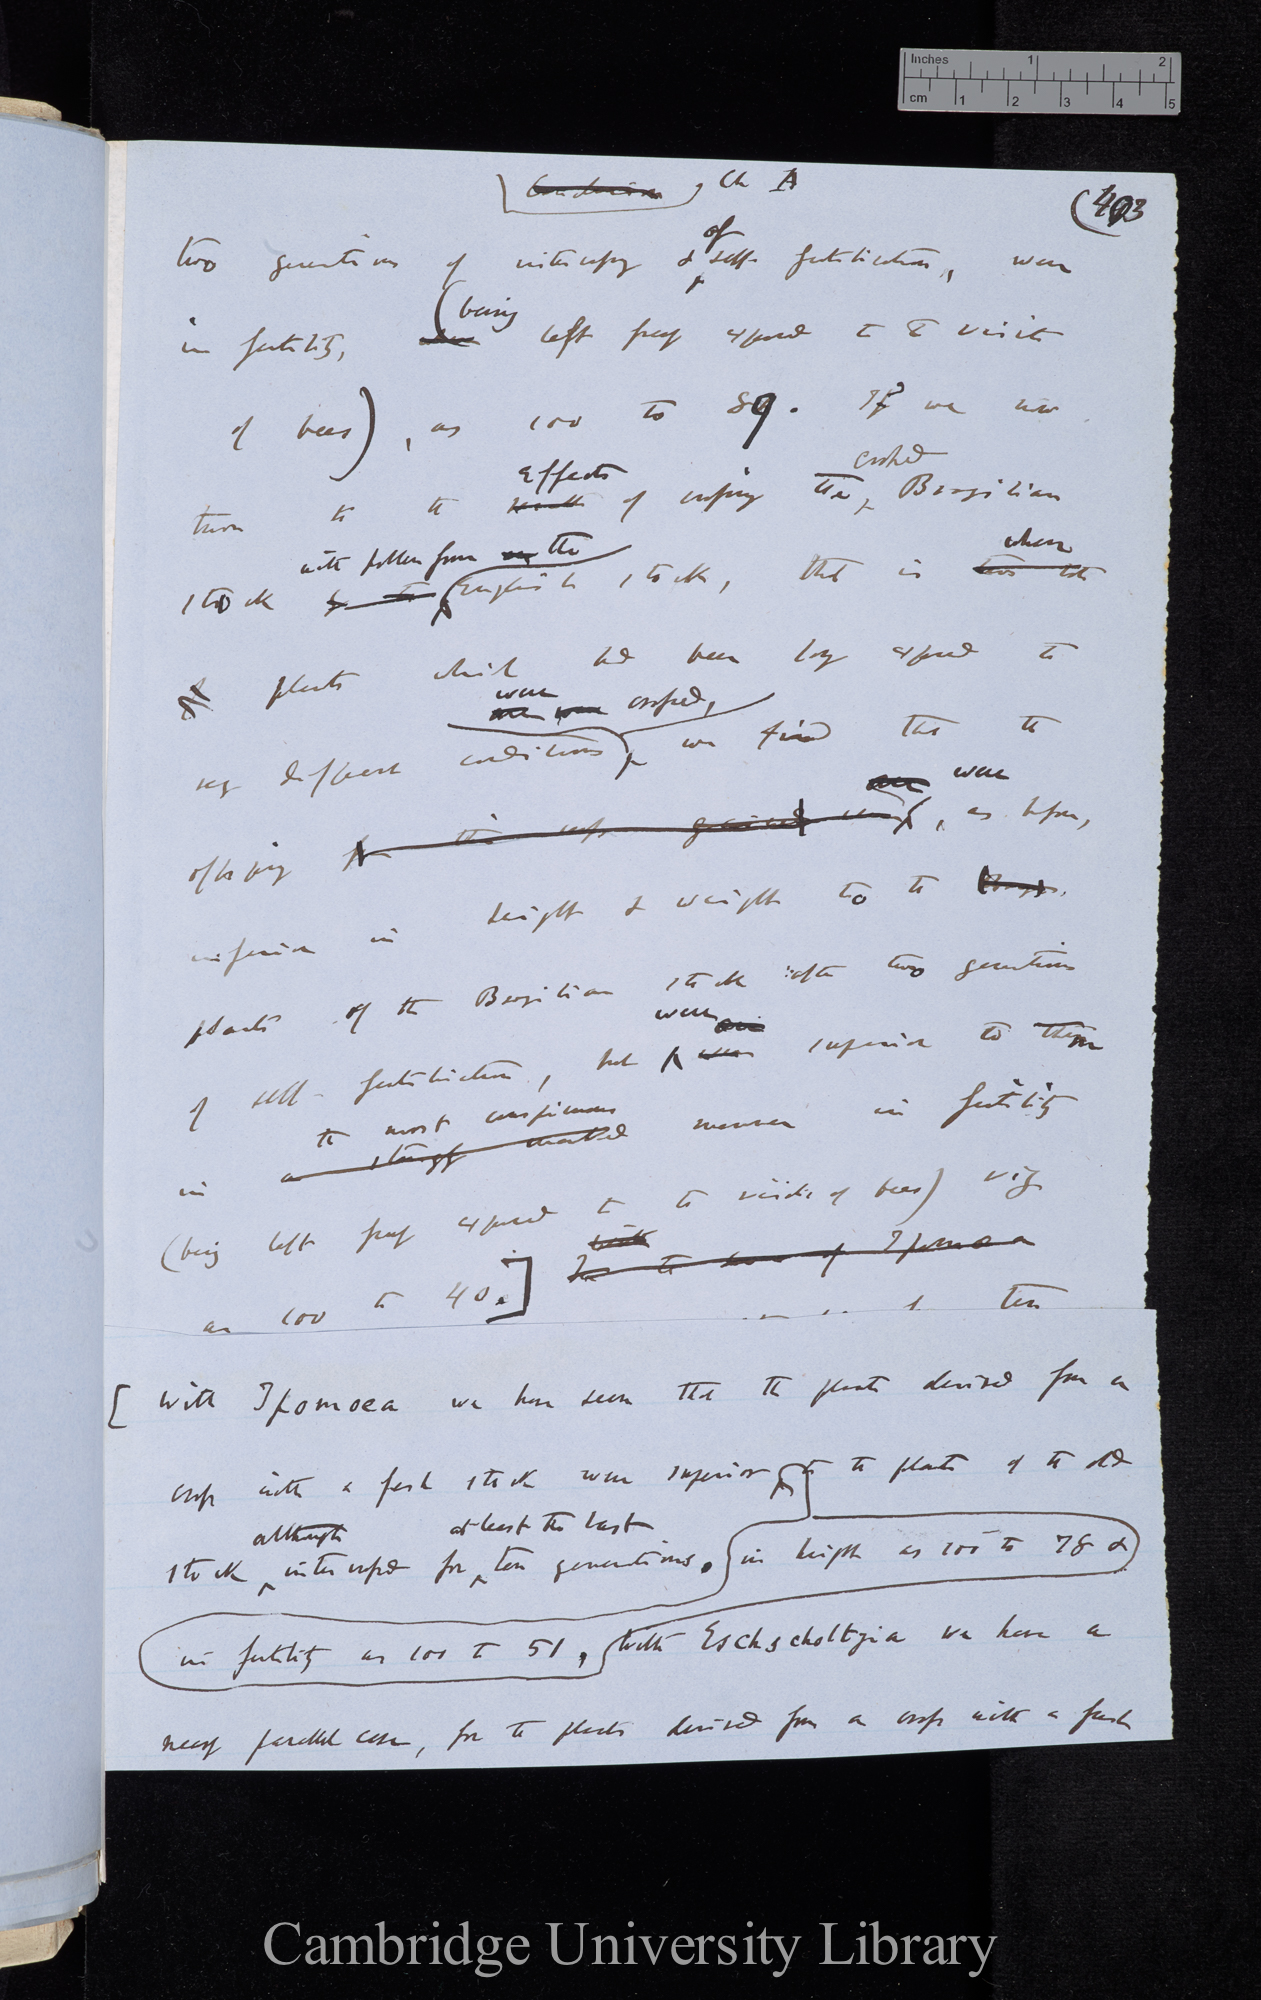 Inches 1 2
cm 1 2 3 4 5
Conclusion, Ch A
(403
two generations of intercrossing & of self-fertilisation, were
in fertility, when (being left freely exposed to the visits
of bees), as 100 to 89. If we now
crossed
effects
turn to the results of crossing the Brazilian
with pollen from the where
stock English stock, that is two lots
of plants which had been long exposed to
were
are were crossed,
very different conditions, we find that the
are were
offspring from this cross gained, as before,
inferior in height & weight to the
plants of the Brazilian stock after two generations
were are
of self-fertilisation, but were superior to them
the most conspicuous
in a strongly marked manner in fertility
(being left freely exposed to the visits of bees) viz
with
as 100 to 40.] In the case of Ipomoea
ten
[With Ipomoea we have seen that the plants derived from a
cross with a fresh stock were superior to the plants of the old
although at least the last
stock intercrossed for ten generations. in height as 100 to 78 &
in fertility as 100 to 51, With Eschscholtzia we have a
nearly parallel case, for the plants derived from a cross with a fresh
Cambridge University Library